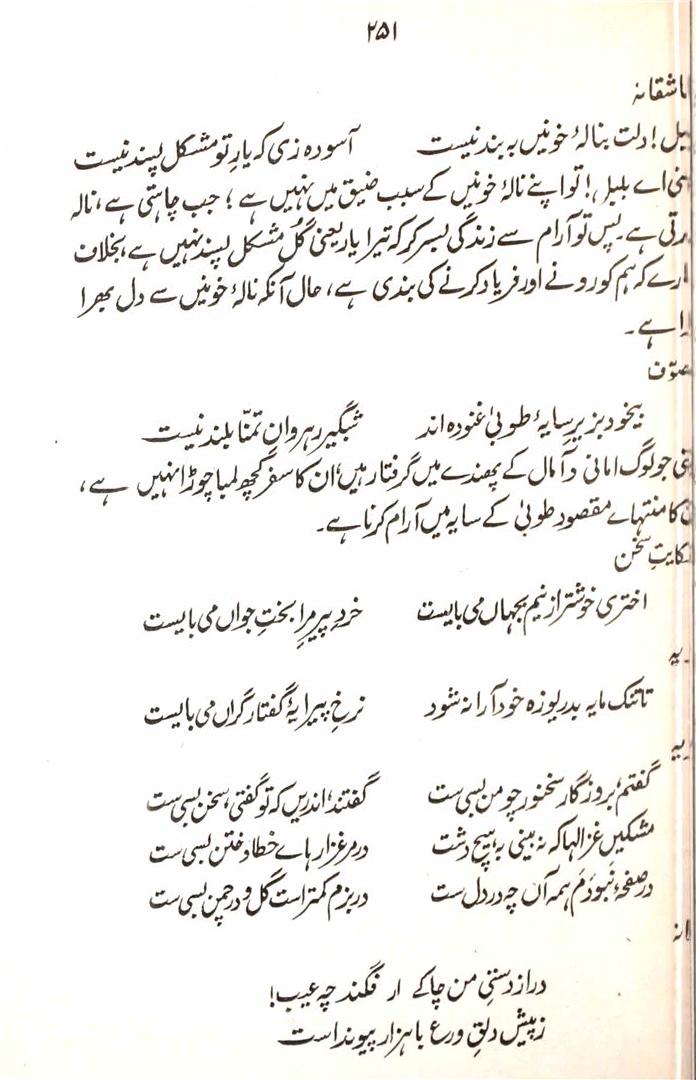 ۲۵۱
اشقانہ
بل! دلت بنالۂ خونیں بہ بند نیست آسودہ زی کہ یارِ تو مشکل پسند نیست
نی اے بلبل! تو اپنے نالۂ خونیں کے سبب ضیق میں نہیں ہے؛ جب چاہتی ہے، نالہ
رتی ہے۔ پس تو آرام سے زندگی بسر کر کہ تیرا یار یعنی گل مشکل پسند نہیں ہے، بخلاف
ارے کہ ہم کو رونے اور فریاد کرنے کی بندی ہے، حال آنکہ نالۂ خونیں سے دل بھرا
را ہے۔
صوّف
بیخود بزیرِ سایۂ طوبیٰ غنودہ اند شبگیرِ رہروانِ تمنّا بلند نیست
نی جو لوگ امانی و آمال کے پھندے میں گرفتار ہیں، ان کا سفر کچھ لمبا چوڑا نہیں ہے،
ن کا منتہاے مقصود طوبیٰ کے سایہ میں آرام کرنا ہے۔
کایتِ سخن
اختری خوشتر ازنیم بجہاں می بایست خردِ پیرِ مرا بختِ جواں می بایست
ریہ
تا تنک مایہ بدریوزہ خود آرا نہ شود نرخِ پیرایۂ گفتار گراں می بایست
ریہ
گفتم، بروزگار سخنور چو من بسی ست گفتند، اندریں کہ تو گفتی، سخن بسی ست
مشکیں غزالہا کہ نہ بینی بہ ہیچ دشت در مرغزارہاے خطا و ختن بسی ست
در صفحۂ نبودَم ہمہ آں چہ در دل ست در بزم کمتر است گل و در چمن بسی ست
انہ
دراز دستیِ من چاکے ار فگند چہ عیب!
ز پیش دلقِ ورع با ہزار پیوند است